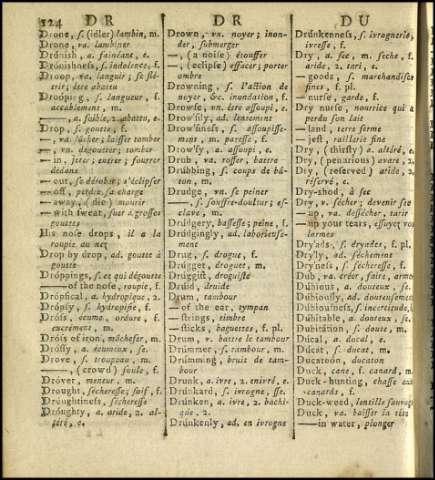 324 DR DR DU
Drone, s. (idler) lambin, m.
Drone, va. lambiner
Drónish, a. fainéant, e.
Drónishness, s. indolence, f.
Droop, va. languir; se flé-
trir; être abattu
Drooping, s. langueur, f.
accablement, m.
——, a. foible, 2. abattu, e.
Drop, s. goutte, f.
—, va. lâcher; laisser tomber
—, vn. dégoutter; tomber
— in, jetter; entrer; fourrer
dedans
— out, se dérober; s'éclipser
— off, perdre, se charge
— away, (die) mourir
— with sweat, suer à grosses
gouttes
His nose drops, il a la
roupie au nez
Drop by drop, ad. goutte à
goutte
Dróppings, s. ce qui dégoutte
—— of the nose, roupie, f.
Drópsical, a. hydropique, 2.
Drópsy, s. hydropisie, f.
Dross, s. écume, ordure, f.
excrément, m.
Dross of iron, mâchefer, m.
Dróssy, a. écumeux, se.
Drove, s. troupeau, m.
——, (crowd) foule, f.
Dróver, meneur, m.
Drought, sécheresse; soif, f.
Droughtiness, sécheresse
Droughty, a. aride, 2. al-
téré, e.
Drown, va. noyer; inon-
der, submerger
—, (a noise) étouffer
—, (eclipse) effacer; porter
ombre
Drowning, s. l'action de
noyer, &c. inondation, f.
Drowse, vn. être assoupi, e.
Drowsily, ad. lentement
Drowsiness, s. assoupisse-
ment, m. paresse, f.
Drowsy, a. assoupi, e.
Drub, va. rosser, battre
Drúbbing, s. coups de bâ-
ton, m.
Drudge, vn. se peiner
——, s. souffre-douleur; es-
clave, m.
Drúdgery, bassesse; peine, f.
Drúdgingly, ad. laborieuse-
ment
Drug, s. drogue, f.
Drúgget, droguet, m.
Drúggist, droguiste
Druid, druide
Drum, tambour
— of the ear, tympan
— strings, timbre
— sticks, baguettes, f. pl.
Drum, v. battre le tambour
Drúmmer, s. tambour, m.
Drúmming, bruit de tam-
bour
Drunk, a. ivre, 2. enivré, e.
Drúnkard, s. ivrogne, sse.
Drúnken, a. ivre, 2. bachi-
que, 2.
Drúnkenly, ad. en ivrogne
Drúnkenness, s. ivrognerie,
ivresse, f.
Dry, a. sec, m. seche, f.
aride, 2. tari, e.
— goods, s. marchandises
fines, f. pl.
— nurse, garde, f.
Dry nurse, nourrice qui a
perdu son lait
— land, terre ferme
— jest, raillerie fine
Dry, (thirsty) a. altéré, e.
Dry, (penurious) avare, 2.
Dry, (reserved) aride, 2.
réservé, e.
Dry-shod, à sec
Dry, v. sécher; devenir sec
— up, va. dessécher, tarir
— up your tears, essuyez vos
larmes
Dry'ads, s. dryades, f. pl.
Dry'ly, ad. séchement
Dry'ness, s. sécheresse, f.
Dub, va. créer, faire, armer
Dúbious, a. douteux, se.
Dúbiously, ad. douteusement
Dúbiousness, s. incertitude,
Dúbitable, a. douteux, se.
Dubitátion, s. doute, m.
Dúcal, a. ducal, e.
Dúcat, s. ducat, m.
Ducatóon, ducaton
Duck, cane, f. canard, m.
Duck-hunting, chasse aux
canards, f.
Duck-weed, lentille sauvage
Duck, va. baisser la tête
— in water, plonger